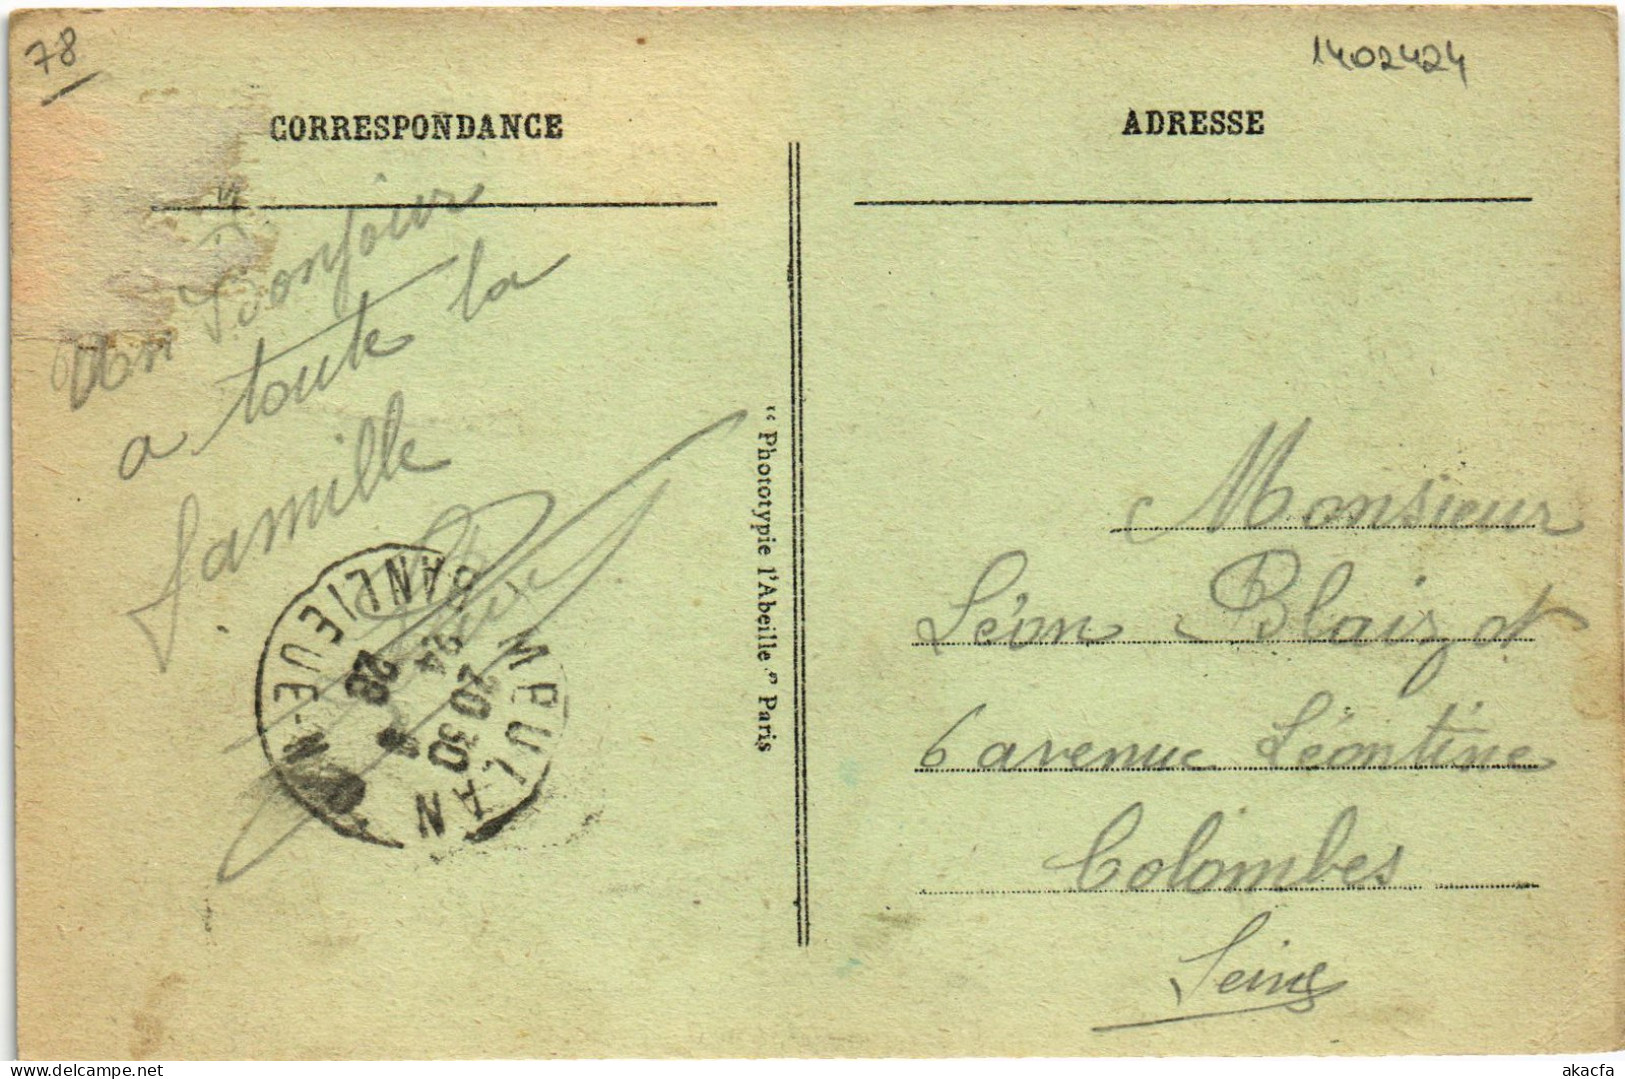 78
1402424
CORRESPONDANCE
ADRESSE
Un Bonjour
a toute la
famille
BANLIEUE-N
MEULAN
20 30
24
28
" Phototypie l'Abeille " Paris
Monsieur
Léon Blaizot
6 avenue Léontine
Colombes
Seine
akacfa